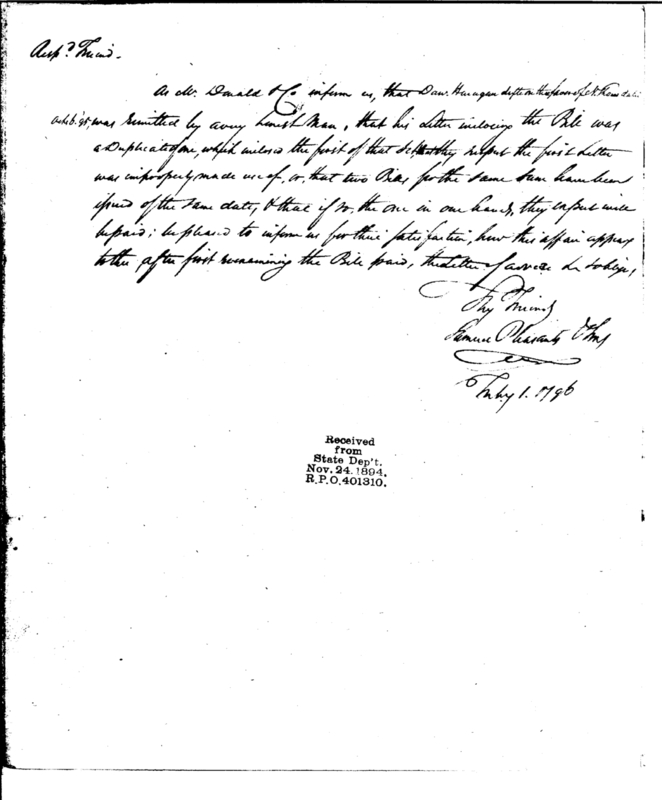 Resp.d Friend.
As Mc. Donald & Co inform us, that Dav. Henagan dft on the favor of
was remitted by a very honest Man, that his Letter inclosing the Bill was
a Duplicate of one, which inclosed the first of that Set, they suspect the first Letter
was improperly made use of, or, that two Bills for the same Sum have been
issued of the same date, & that if so, the one in our hands, they expect will
be paid; be pleased to inform us for their satisfaction, how this affair appears
to thee, after first examining the Bill paid, the Letter of advice &c & oblige,
Thy Friends
Samuel Pleasants & Sons
July 1. 1796
Received
from
State Dep't.
Nov. 24. 1894.
R.P.O. 401310.